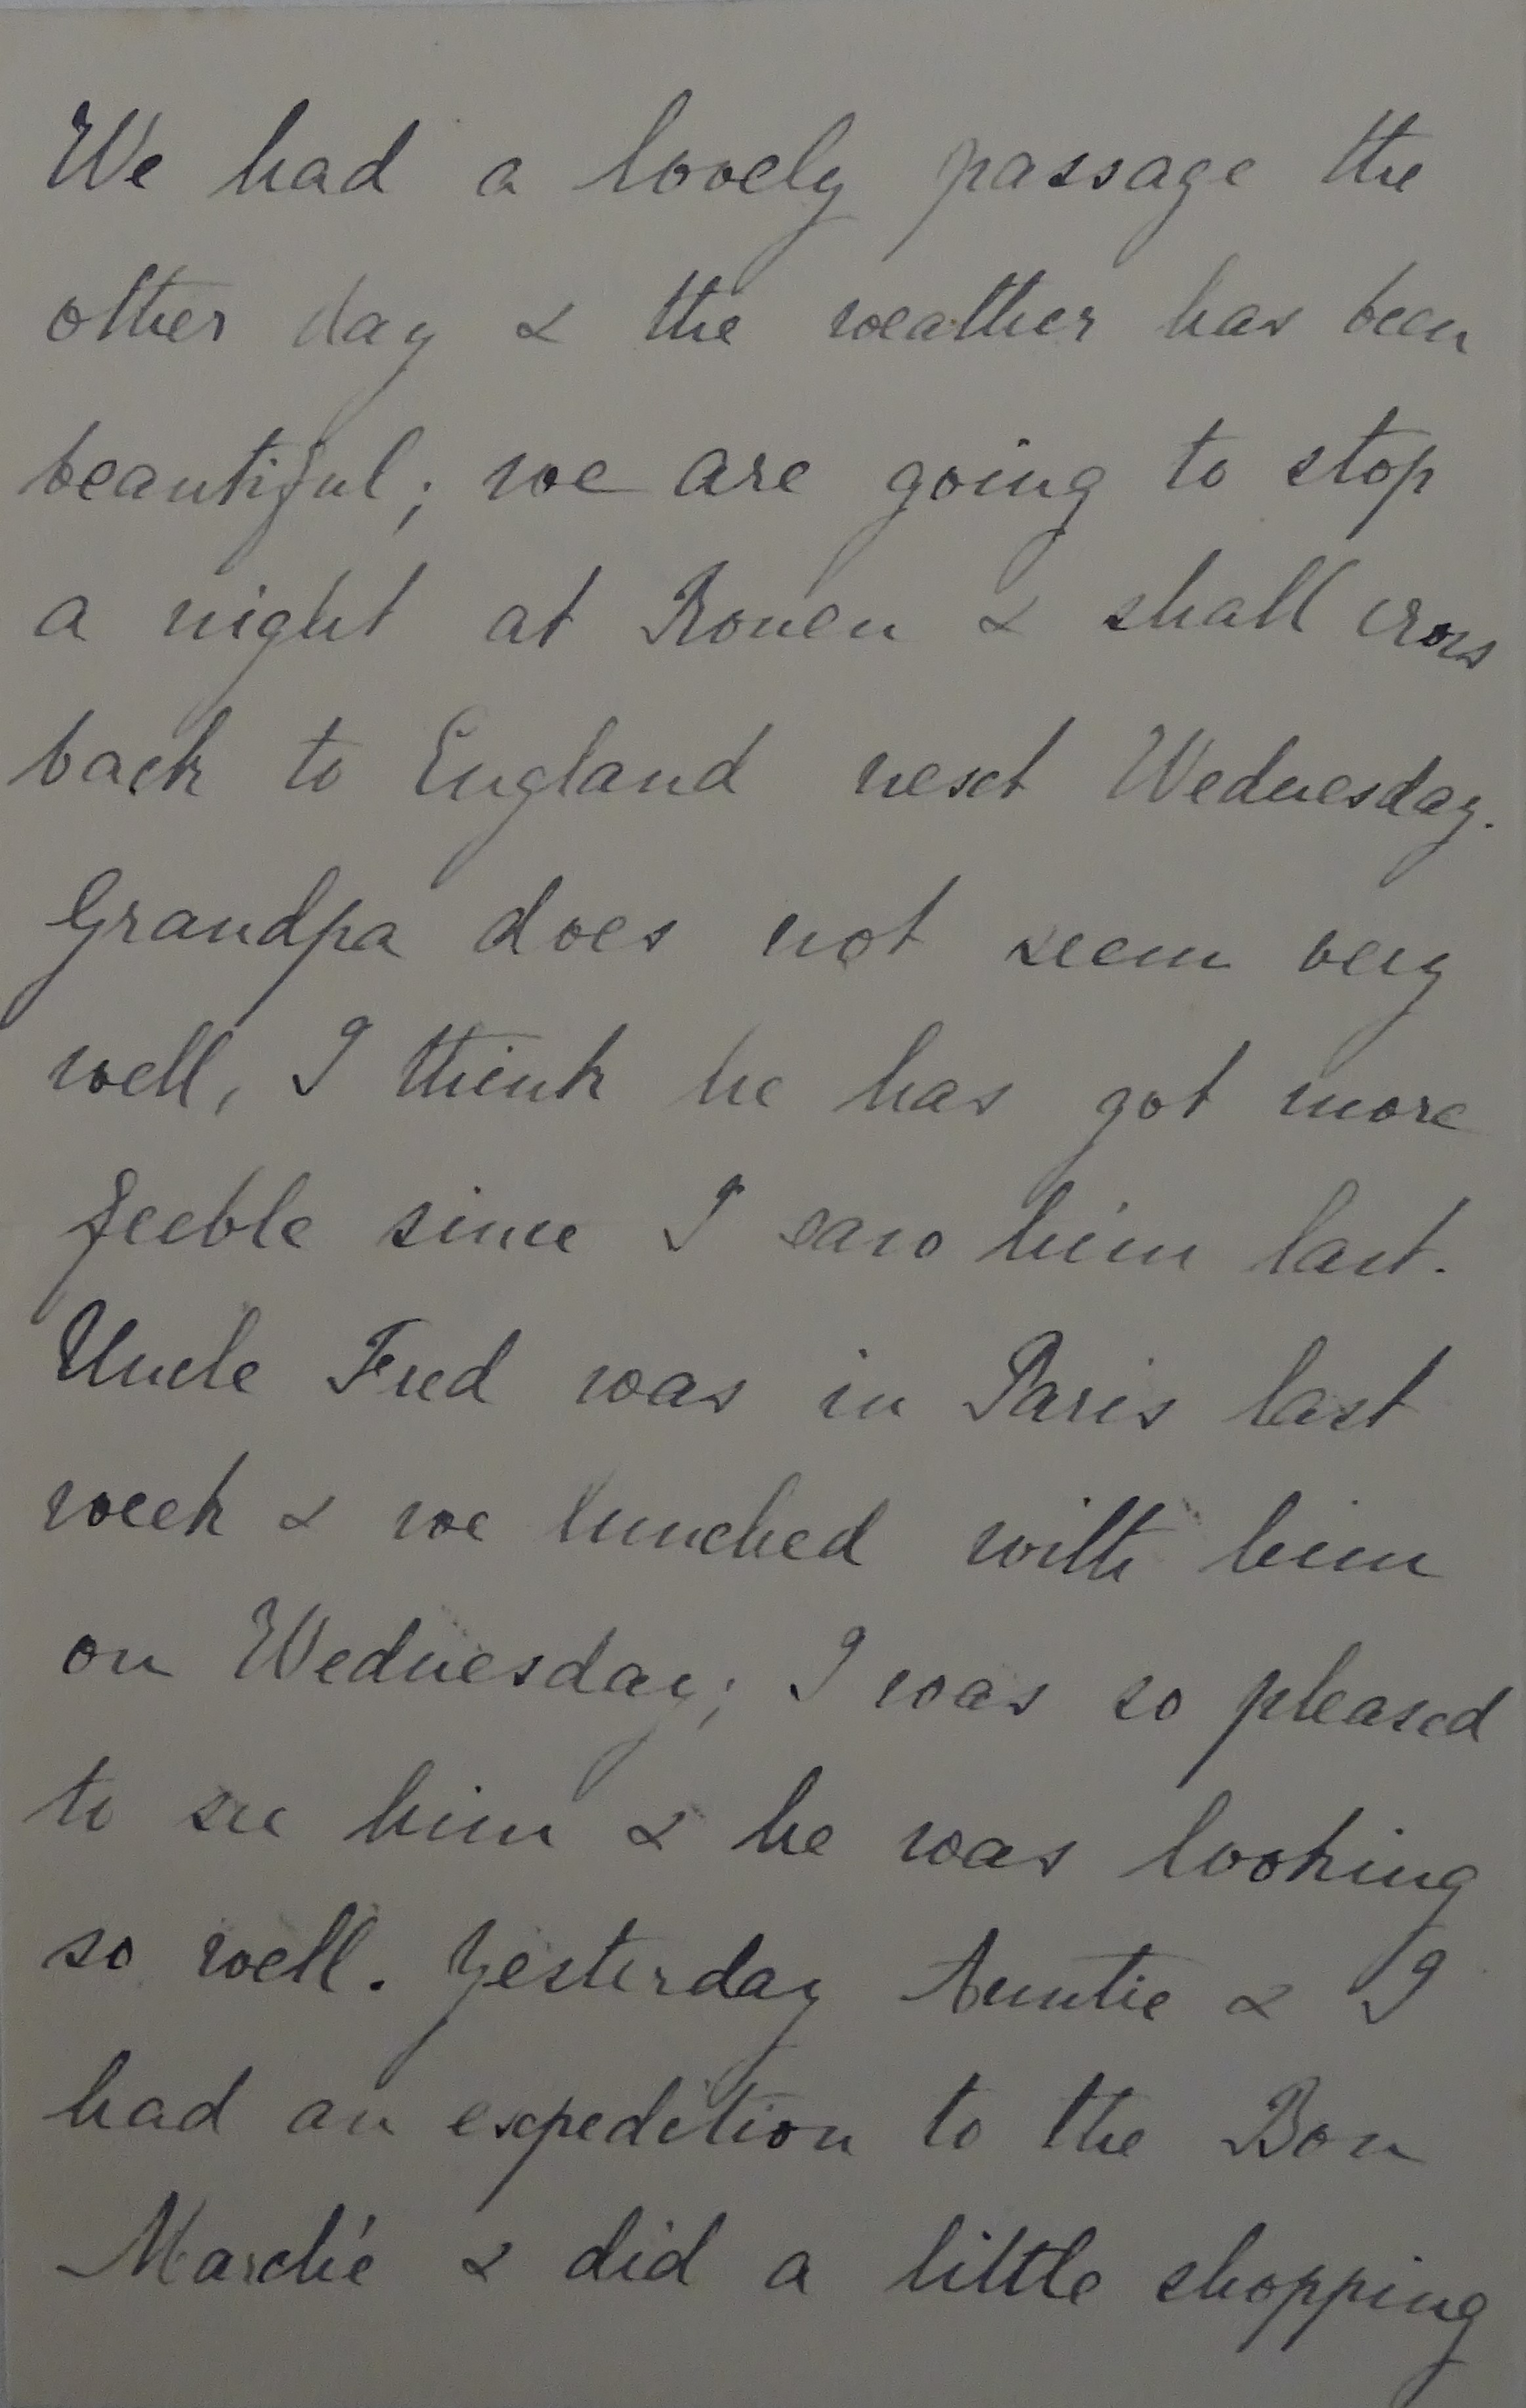 We had a lovely passage the
other day & the weather has been
beautiful; we are going to stop
a night at Rouen & shall cross
back to England next Wednesday.
Grandpa does not seem very
well, I think he has got more
feeble since I saw him last.
Uncle Fred was in Paris last
week & we lunched with him
on Wednesday; I was so pleased
to see him & he was looking
so well. Yesterday Auntie & I
had an expedition to the Bon
Marché & did a little shopping